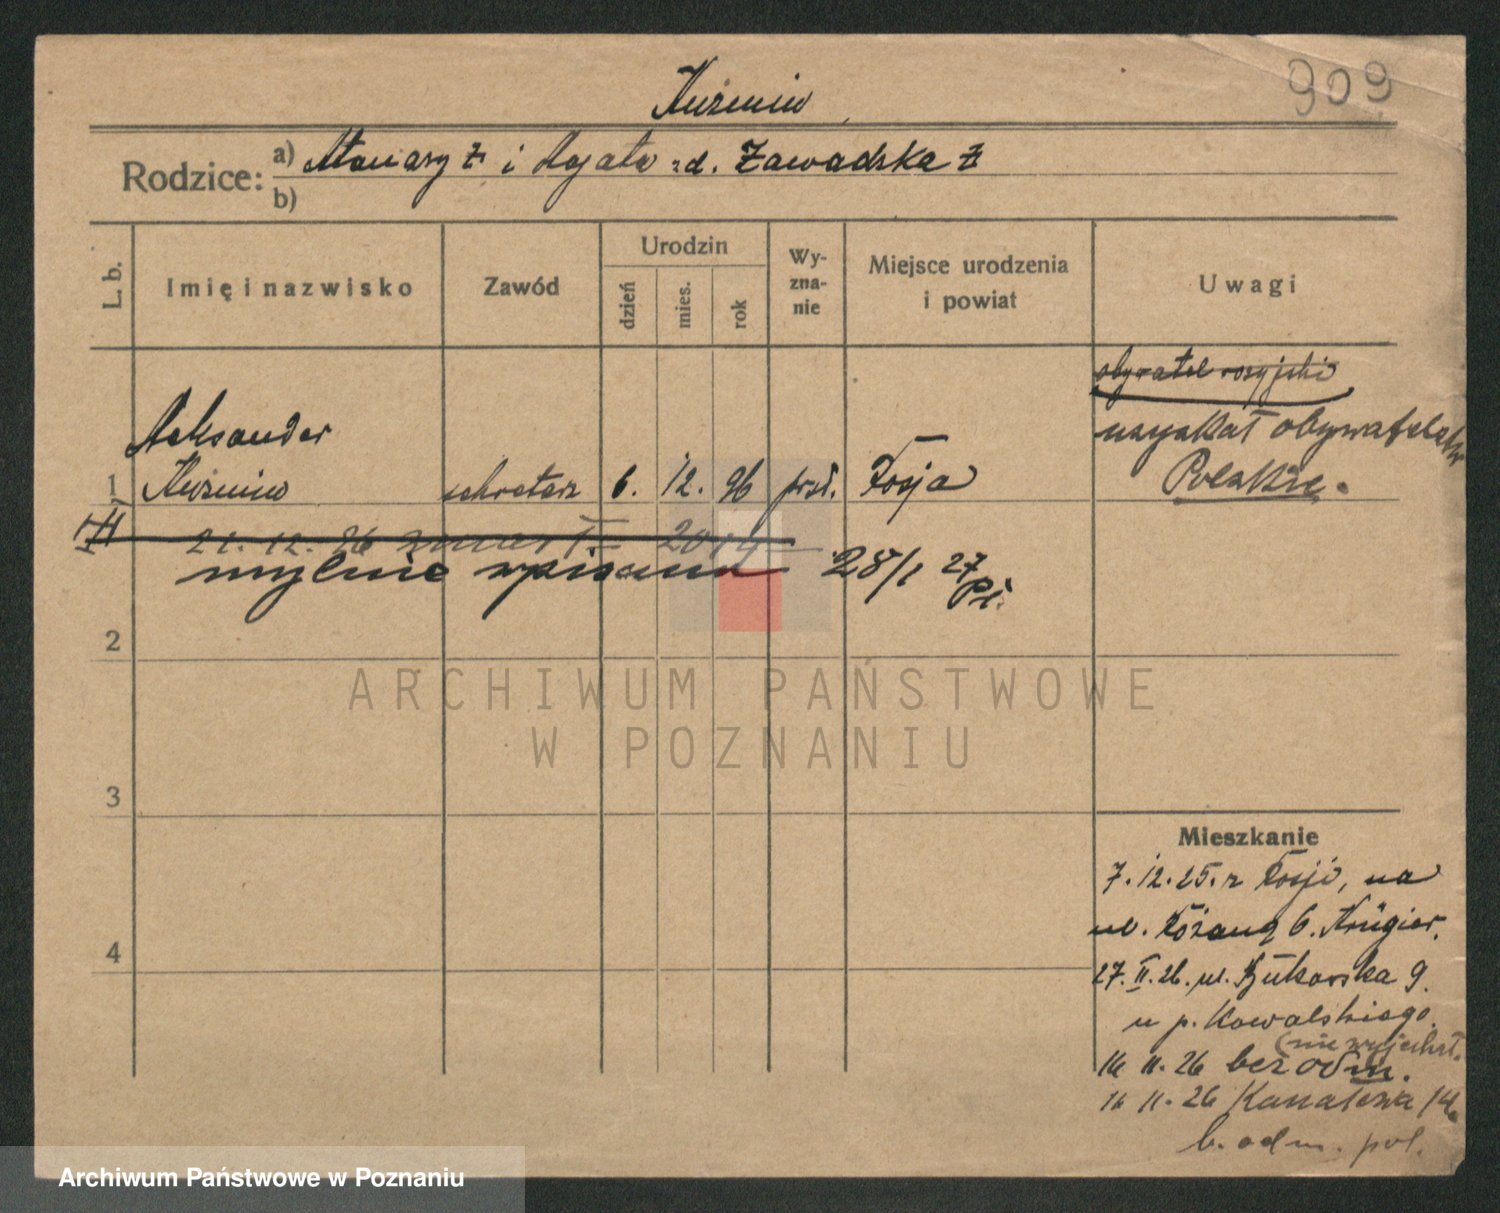 Kuźmin
909
Rodzice: a) i Agata zd. Zawadzka
b)
L. b.
Imię i nazwisko
Zawód
Urodzin
dzień
mies.
rok
Wy-
zna-
nie
Miejsce urodzenia
i powiat
Uwagi
obywatel rosyjski
uzyskał obywatelstw
Polskie.
Aleksander
1 Kuźmin sekretarz 6. 12. 96 prst. Rosja
21. 12. 26 zmarł
mylnie wpisane 28/1 27
2
3
4
Mieszkanie
7. 12. 25. z Rosji, na
ul. Różaną 6. Krüger.
27. II. 26. ul. Bukowska 9.
u p. Kowalskiego.
(nie wyjechał.
16 11. 26 bez odm.
16 11. 26 Kanałowa
b. odm. pol.
ARCHIWUM PAŃSTWOWE
W POZNANIU
Archiwum Państwowe w Poznaniu